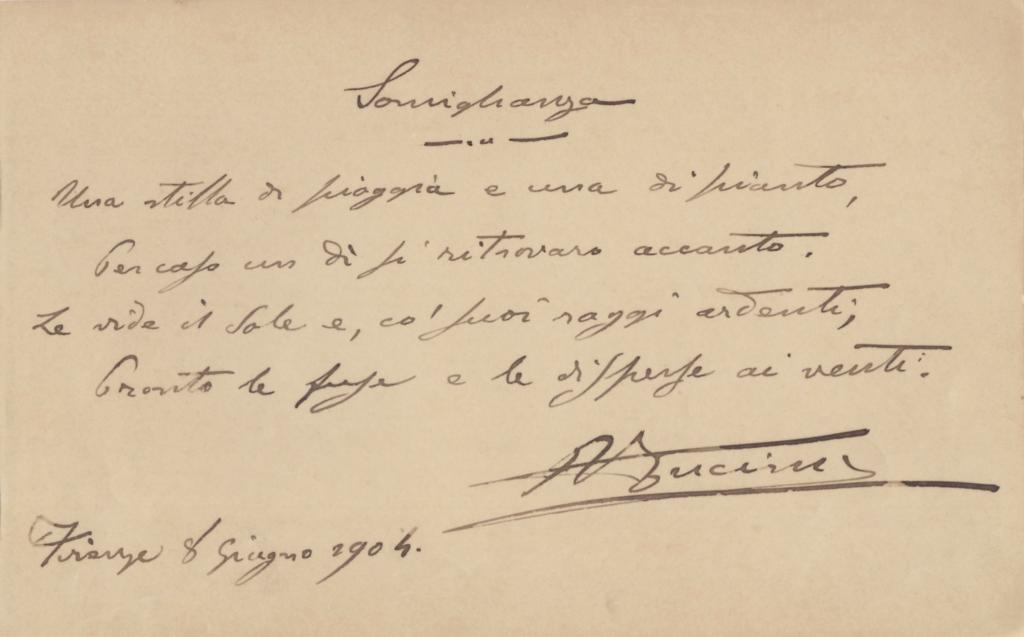 Somiglianza
Una stilla di pioggia e una di pianto,
Per caso un dì si ritrovaro accanto.
Le vide il Sole e, co' suoi raggi ardenti,
Pronto le fuse e le disperse ai venti.
Firenze 8 Giugno 1904.